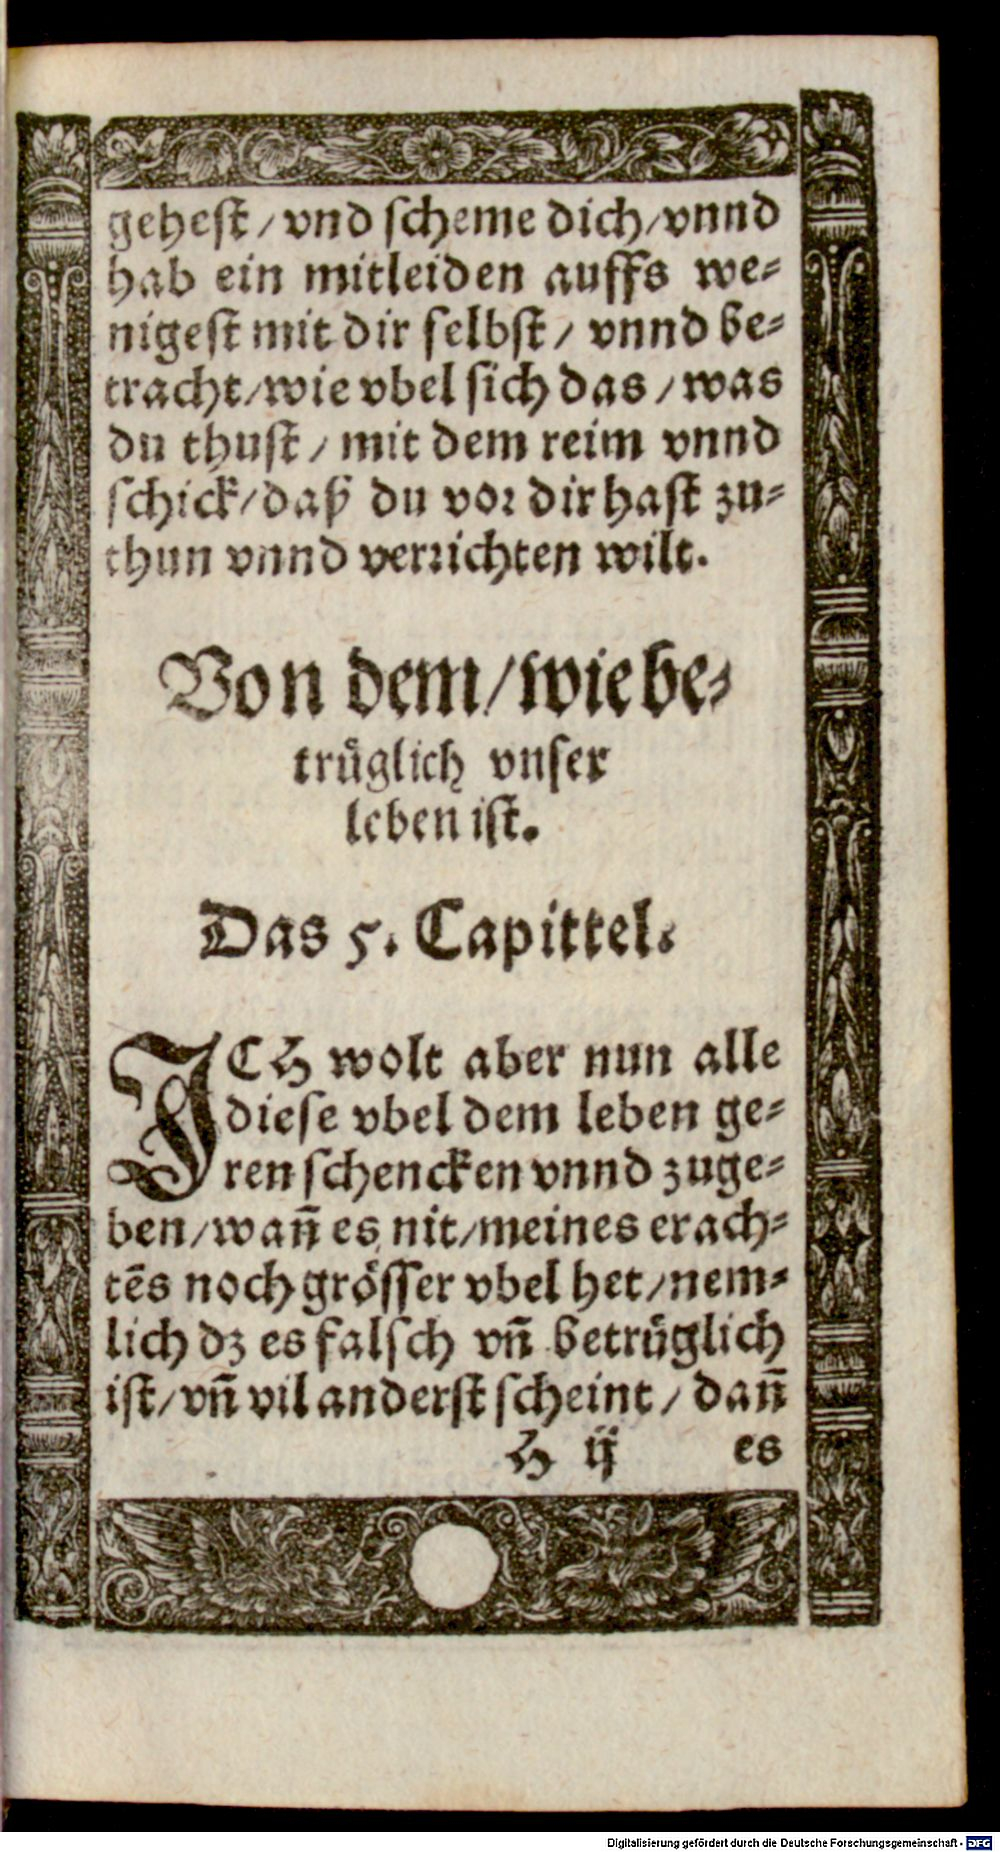 gehest / vnd scheme dich / vnnd
hab ein mitleiden auffs we⸗
nigest mit dir selbst / vnnd be⸗
tracht / wie vbel sich das / was
du thust / mit dem reim vnnd
schick / daß du vor dir hast zu⸗
thun vnnd verrichten wilt.
Von dem / wie be⸗
trüglich vnser
leben ist.
Das 5. Capittel.
ICH wolt aber nun alle
diese vbel dem leben ge⸗
ren schencken vnnd zuge⸗
ben / wañ es nit / meines erach⸗
tẽs noch grösser vbel het / nem⸗
lich dz es falsch vñ betrüglich
ist / vñ vil anderst scheint / dañ
H ij es
Digitalisierung gefördert durch die Deutsche Forschungsgemeinschaft - DFG